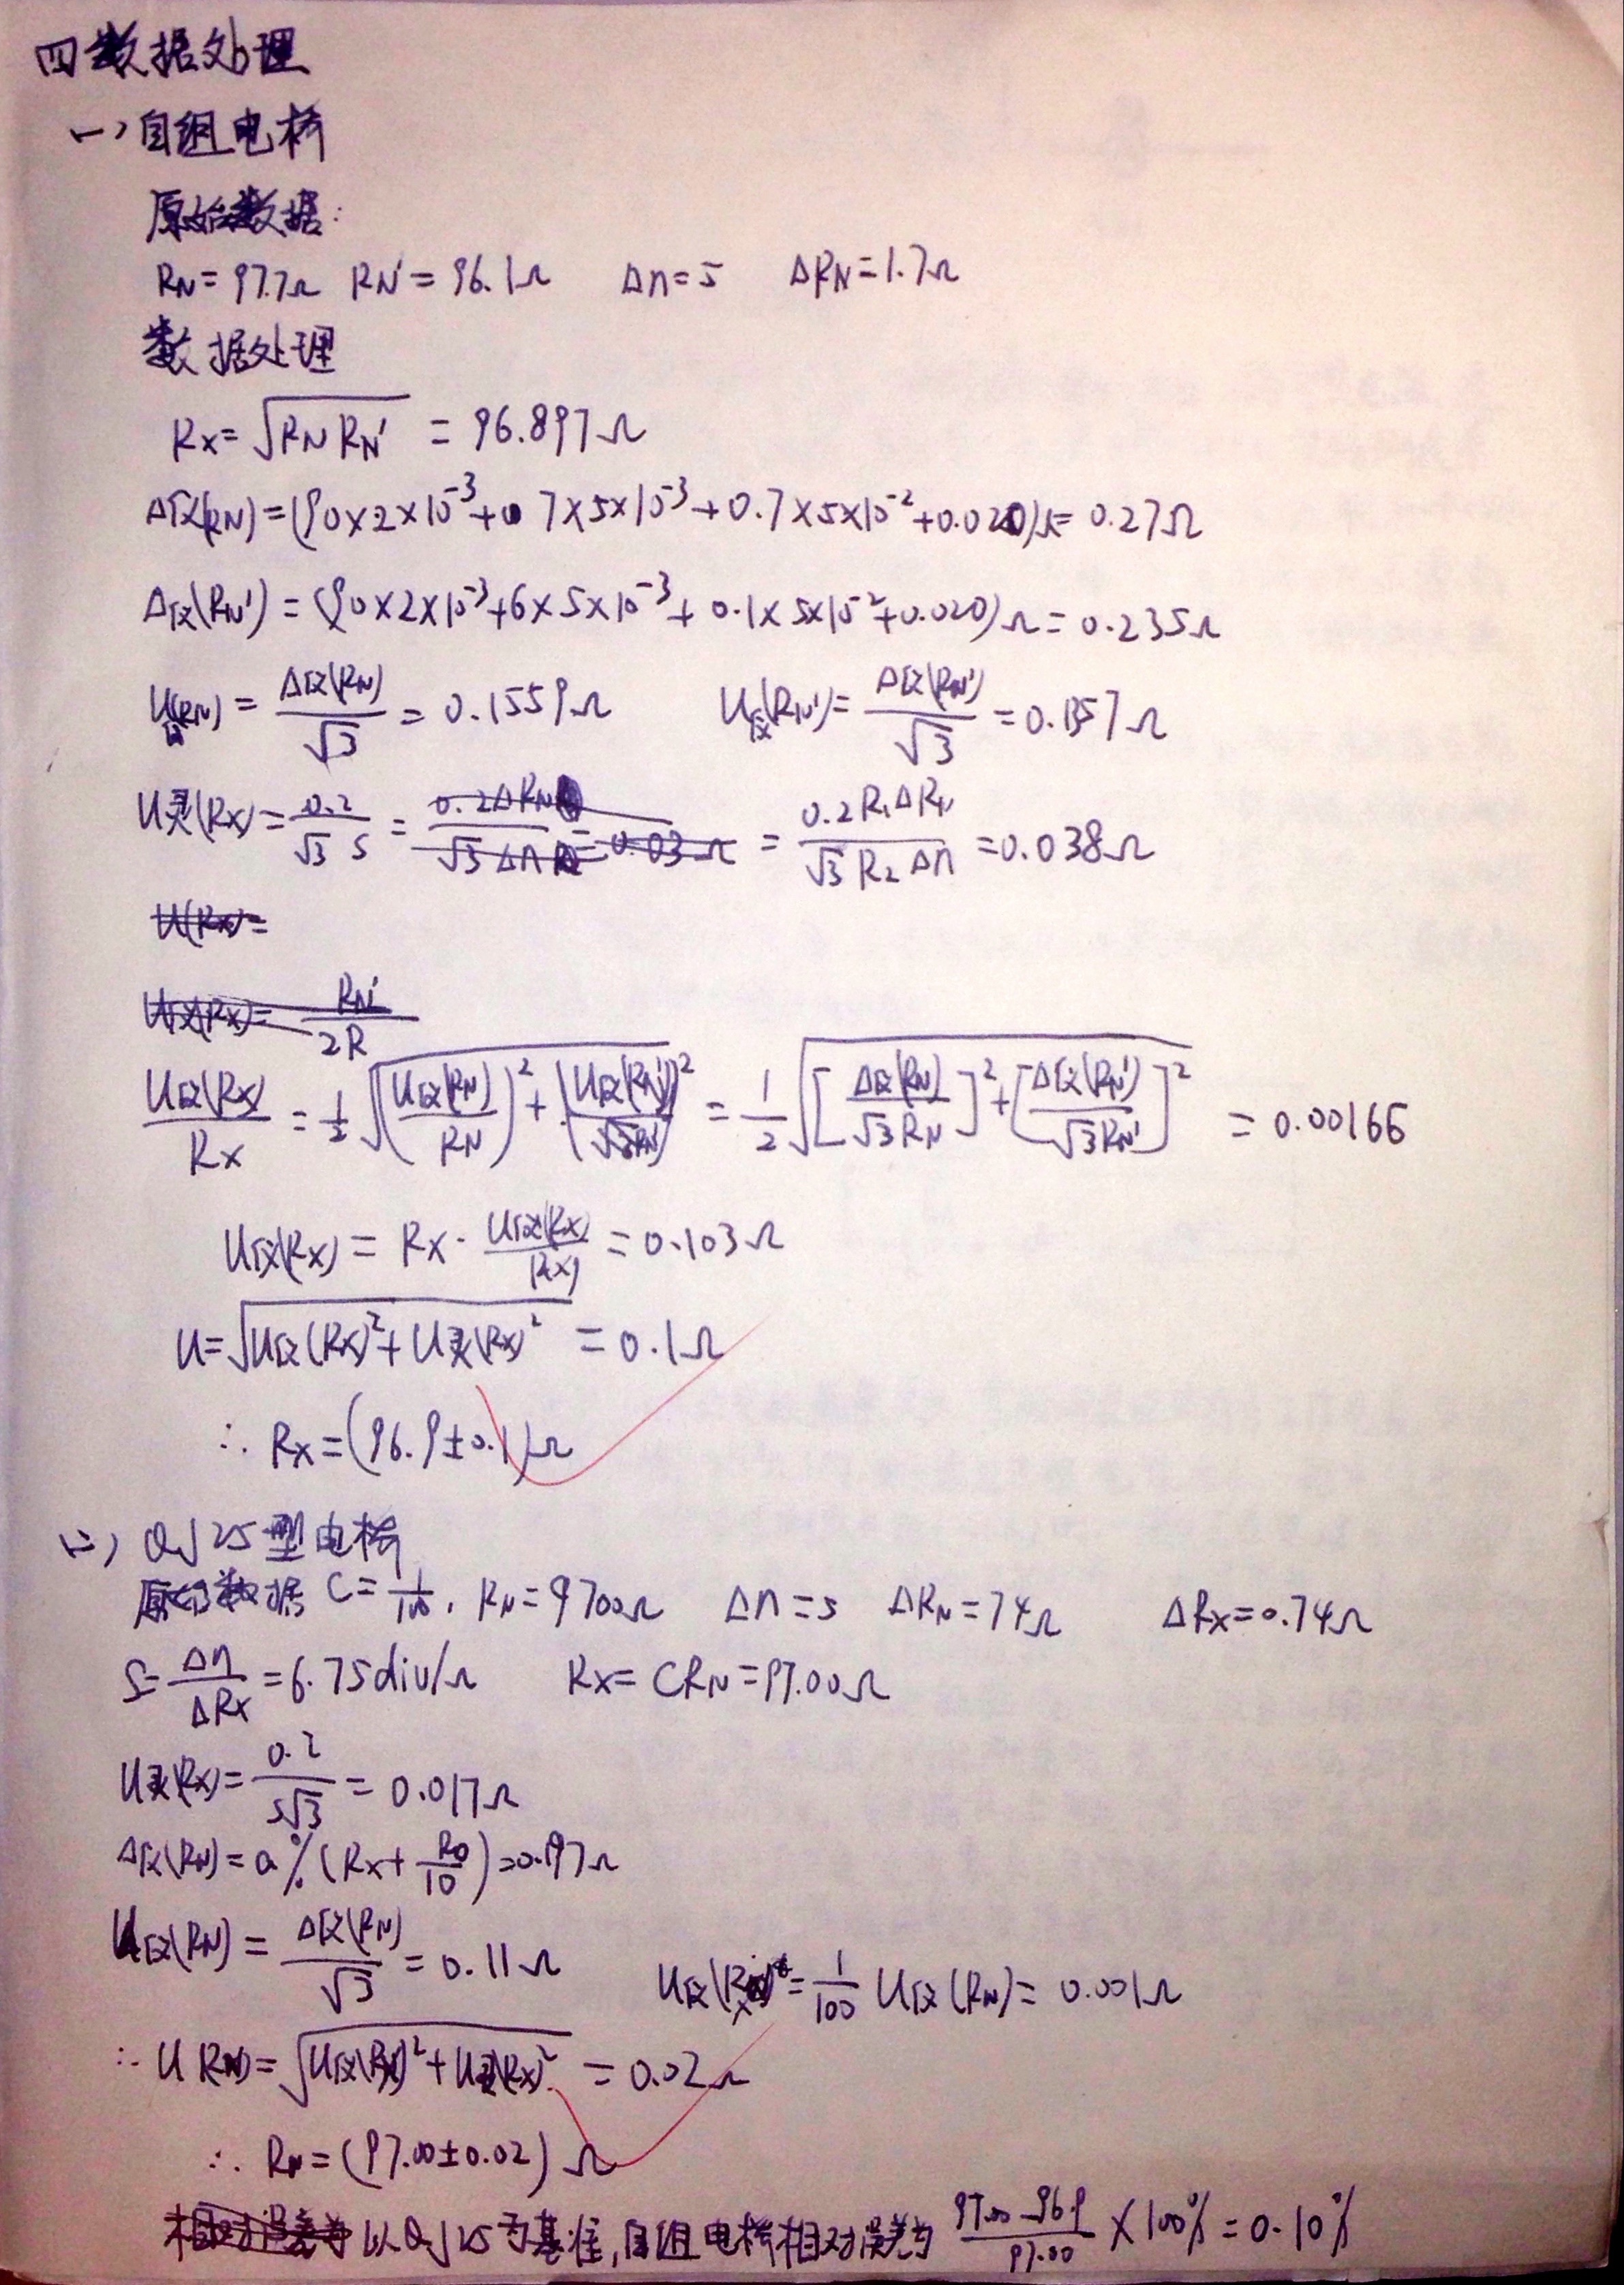 四数据处理
一)自组电桥
原始数据:
RN=97.7Ω RN'=96.1Ω Δn=5 ΔRN=1.7Ω
数据处理
Rx=√(RN RN') = 96.897Ω
Δ仪(RN)=(90×2×10^-3+7×5×10^-3+0.7×5×10^-2+0.020)Ω=0.27Ω
Δ仪(RN')=(90×2×10^-3+6×5×10^-3+0.1×5×10^-2+0.020)Ω=0.235Ω
U仪(RN)=Δ仪(RN)/√3=0.1559Ω U仪(RN')=Δ仪(RN')/√3=0.1357Ω
U灵(Rx)=0.2/(√3 S)=0.2R1ΔRN/(√3 R2Δn)=0.038Ω
U(Rx)=
U仪(Rx)= RN'/2R
U仪(Rx)/Rx=1/2√((U仪(RN)/RN)^2+(U仪(RN')/RN')^2)=1/2√([Δ仪(RN)/(√3RN)]^2+[Δ仪(RN')/(√3RN')]^2)=0.00166
U仪(Rx)=Rx·U仪(Rx)/(Rx)=0.103Ω
U=√(U仪(Rx)^2+U灵(Rx)^2)=0.1Ω
∴Rx=(96.9±0.1)Ω
(二) QJ25型电桥
原始数据 C=1/100, RN=9700Ω Δn=5 ΔRN=74Ω ΔRx=0.74Ω
S=Δn/ΔRx=6.75div/Ω Rx=CRN=97.00Ω
U灵(Rx)=0.2/(S√3)=0.017Ω
Δ仪(RN)=a%(Rx+R0/10)=0.197Ω
U仪(RN)=Δ仪(RN)/√3=0.11Ω U仪(Rx)=1/100 U仪(RN)=0.001Ω
∴U(RN)=√(U仪(RN)^2+U灵(Rx)^2)=0.02Ω
∴RN=(97.00±0.02)Ω
以QJ25为基准,自组电桥相对误差为 (97.00-96.9)/97.00×100%=0.10%